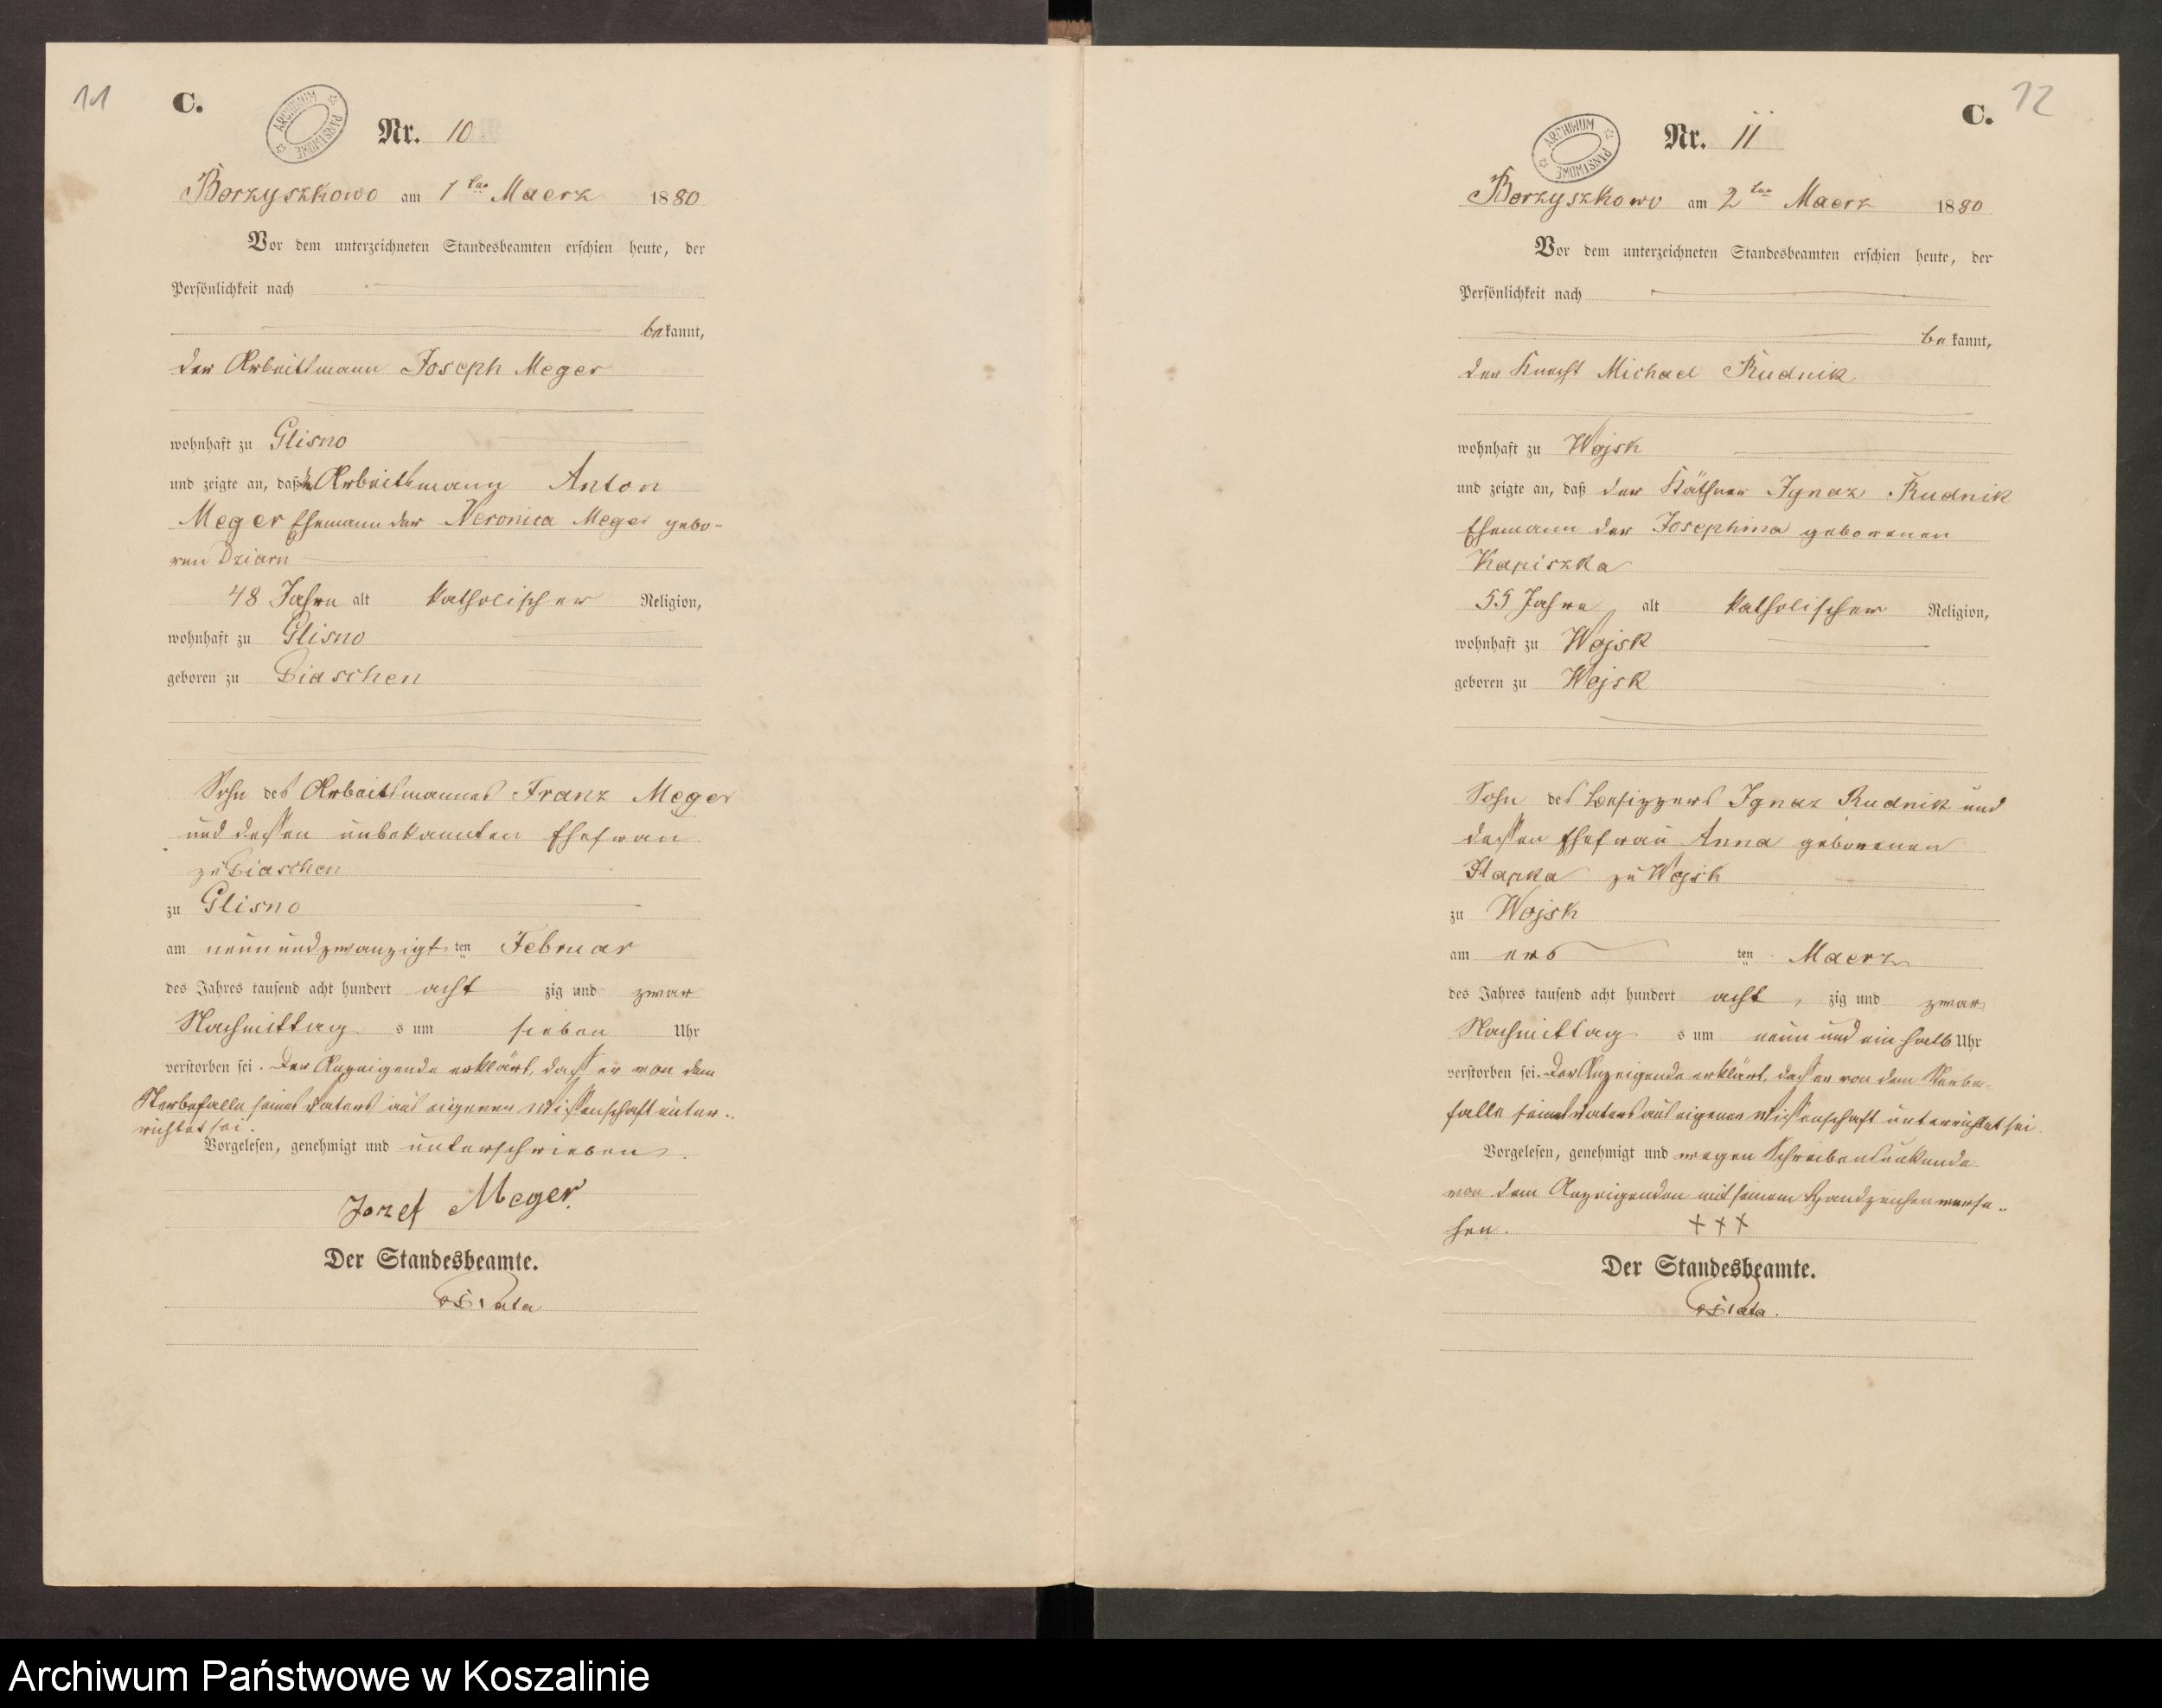 11
C.
ARCHIWUM PAŃSTWOWE
Nr. 10
Borzyszkowo am 1ten Maerz 1880
Vor dem unterzeichneten Standesbeamten erschien heute, der
Persönlichkeit nach
bekannt,
der Arbeitsmann Joseph Meger
wohnhaft zu Glisno
und zeigte an, daß der Arbeitsmann Anton
Meger Ehemann der Veronica Meger gebo-
ren Dziarn
48 Jahre alt katholischer Religion,
wohnhaft zu Glisno
geboren zu Diaschen
Sohn des Arbeitsmannes Franz Meger
und dessen unbekannten Ehefrau
zu Diaschen
zu Glisno
am neunundzwanzigsten Februar
des Jahres tausend acht hundert achtzig und zwar
Nachmittags um sieben Uhr
verstorben sei. Der Anzeigende erklärt, dass er von dem
Sterbefalle seines Vaters aus eigener Wissenschaft unter-
richtet sei.
Vorgelesen, genehmigt und unterschrieben.
Jozef Meger.
Der Standesbeamte.
12
C.
ARCHIWUM PAŃSTWOWE
Nr. 11
Borzyszkowo am 2ten Maerz 1880
Vor dem unterzeichneten Standesbeamten erschien heute, der
Persönlichkeit nach
bekannt,
der Knecht Michael Rudnik
wohnhaft zu Wojsk
und zeigte an, daß der Käthner Ignaz Rudnik
Ehemann der Josephina geborenen
Kapiszka
55 Jahre alt katholischer Religion,
wohnhaft zu Wojsk
geboren zu Wojsk
Sohn des Besizzers Ignaz Rudnik und
dessen Ehefrau Anna geborenen
zu Wojsk
zu Wojsk
am ersten Maerz
des Jahres tausend acht hundert achtzig und zwar
Nachmittags um neun und ein halb Uhr
verstorben sei. Der Anzeigende erklärt, dass er von dem Sterbe-
falle seines Vaters aus eigener Wissenschaft unterrichtet sei.
Vorgelesen, genehmigt und wegen Schreibensunkunde
von dem Anzeigenden mit seinem Handzeichen verse-
hen. +++
Der Standesbeamte.
Archiwum Państwowe w Koszalinie